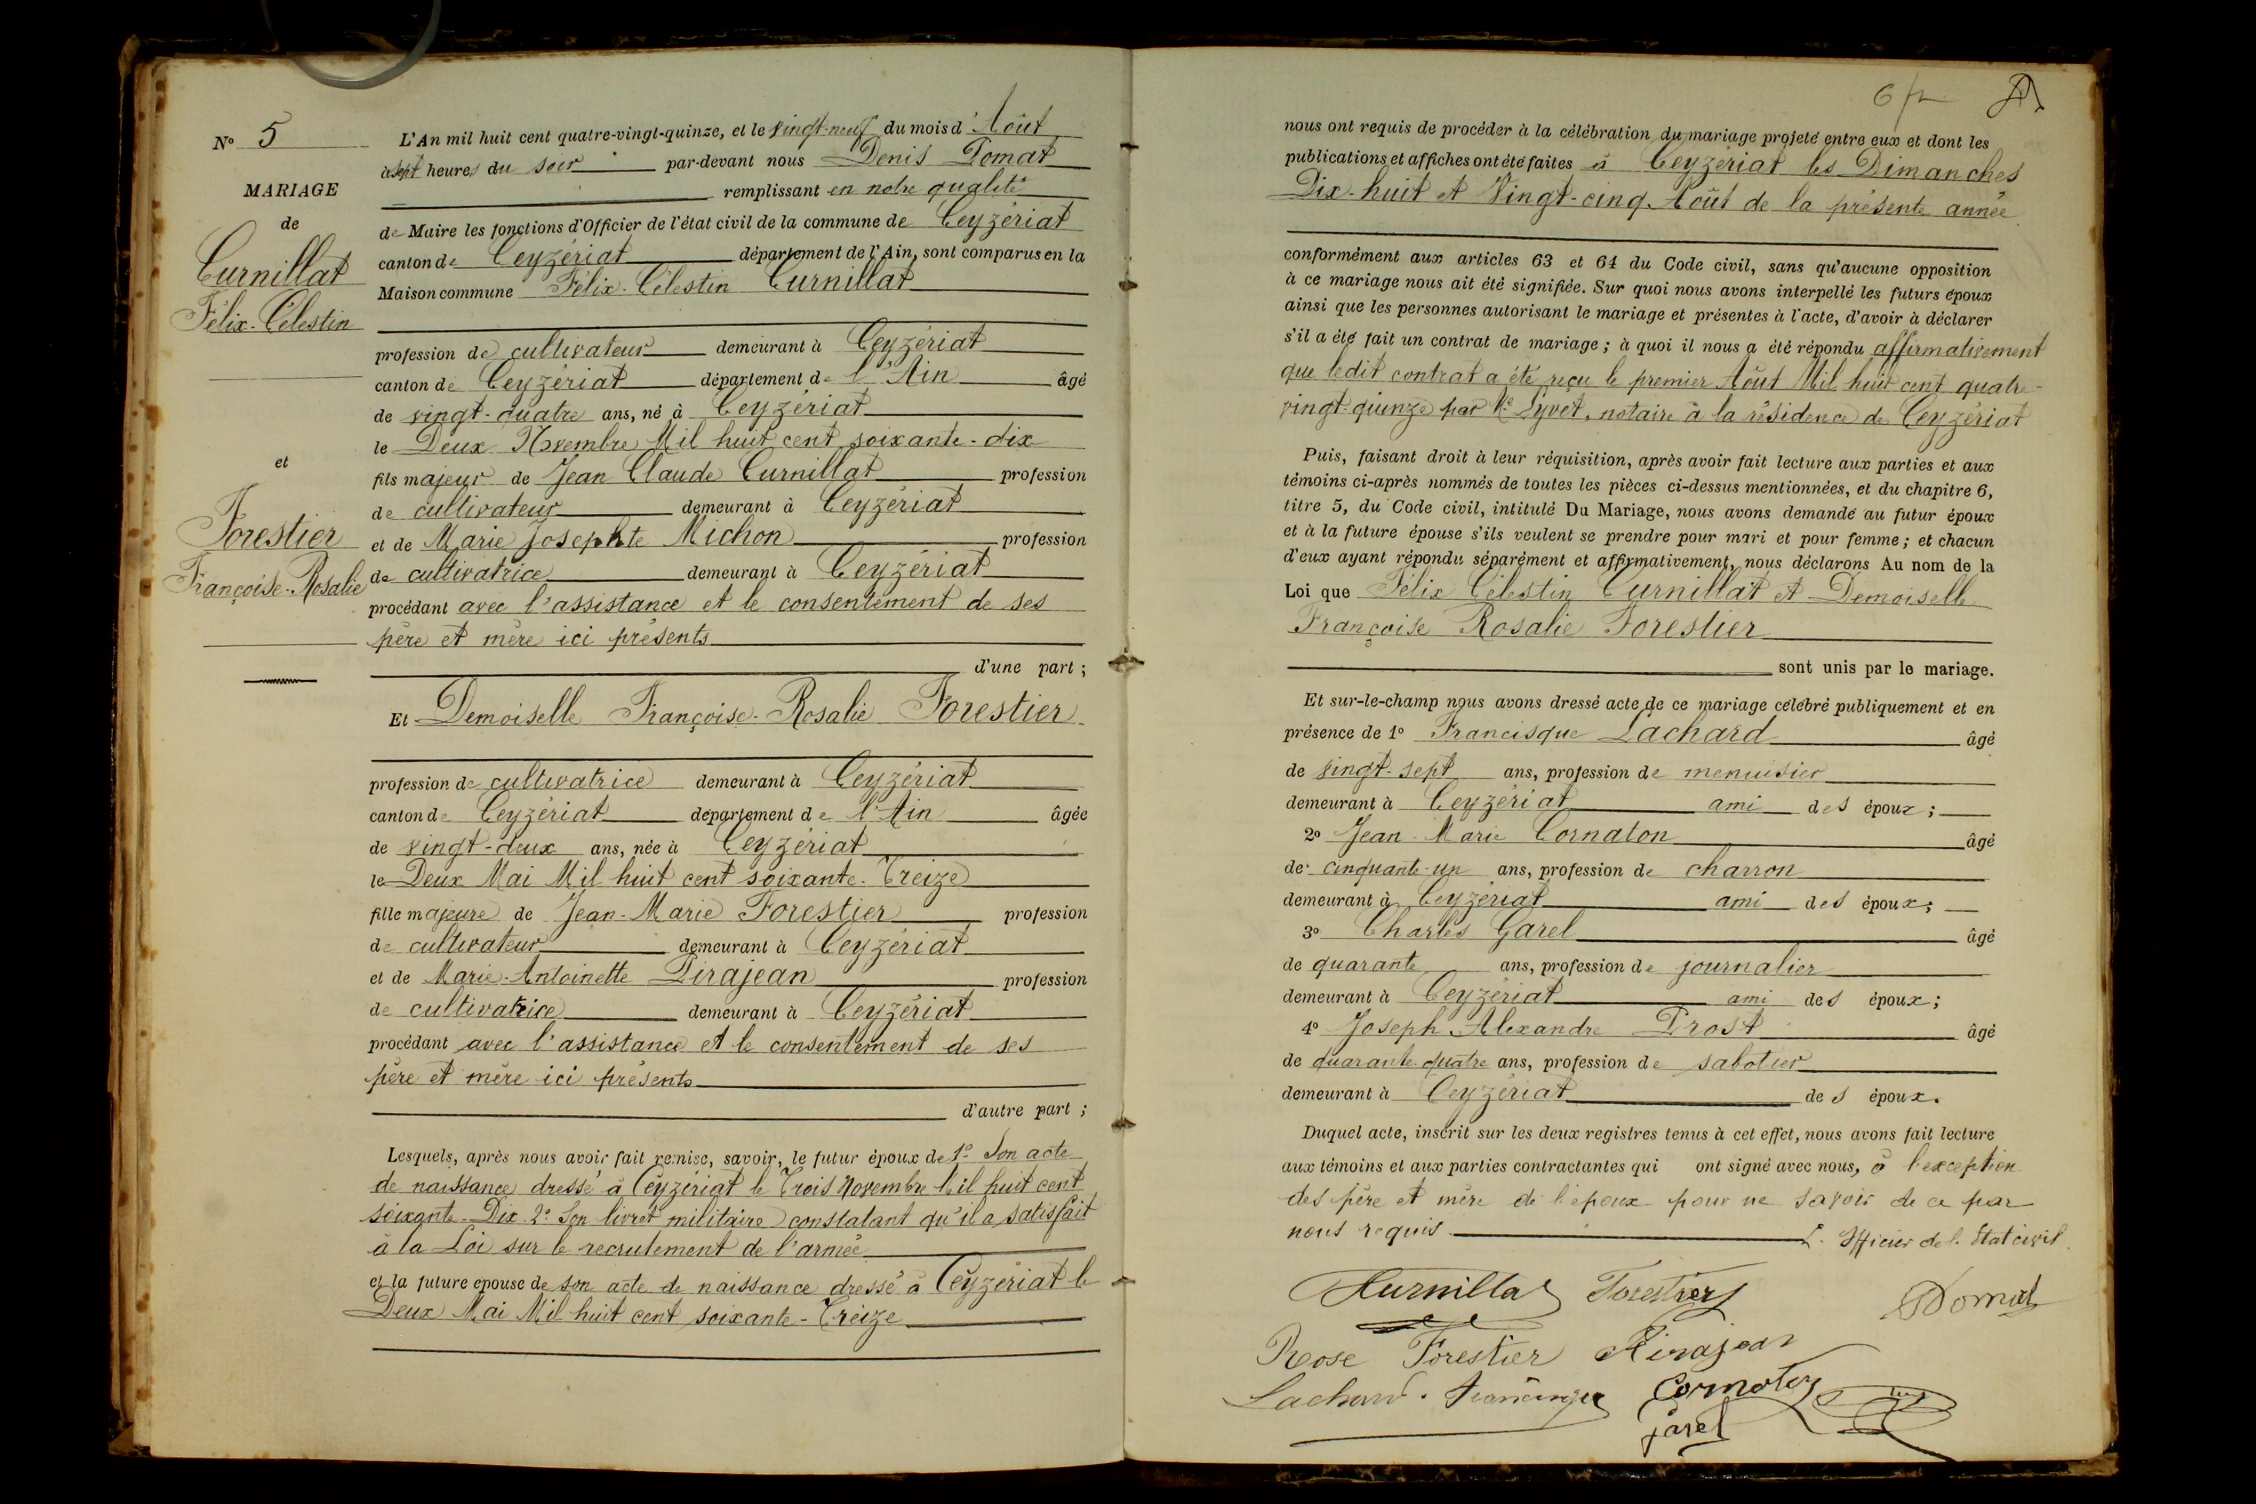 N° 5
MARIAGE
de
Curnillat
Félix-Célestin
et
Forestier
Françoise-Rosalie
L'An mil huit cent quatre-vingt-quinze, et le vingt-neuf du mois d'Août
à sept heures du soir par-devant nous Denis Pomat
remplissant en notre qualité
de Maire les fonctions d'Officier de l'état civil de la commune de Ceyzériat
canton de Ceyzériat département de l'Ain, sont comparus en la
Maison commune Félix-Célestin Curnillat
profession de cultivateur demeurant à Ceyzériat
canton de Ceyzériat département de l'Ain âgé
de vingt-quatre ans, né à Ceyzériat
le Deux Novembre Mil huit cent soixante-dix
fils majeur de Jean Claude Curnillat profession
de cultivateur demeurant à Ceyzériat
et de Marie Josephte Michon profession
de cultivatrice demeurant à Ceyzériat
procédant avec l'assistance et le consentement de ses
père et mère ici présents
d'une part ;
Et Demoiselle Françoise-Rosalie Forestier
profession de cultivatrice demeurant à Ceyzériat
canton de Ceyzériat département de l'Ain âgée
de vingt-deux ans, née à Ceyzériat
le Deux Mai Mil huit cent soixante-Treize
fille majeure de Jean-Marie Forestier profession
de cultivateur demeurant à Ceyzériat
et de Marie-Antoinette Pirajean profession
de cultivatrice demeurant à Ceyzériat
procédant avec l'assistance et le consentement de ses
père et mère ici présents
d'autre part ;
Lesquels, après nous avoir fait remise, savoir, le futur époux de 1° Son acte
de naissance dressé à Ceyzériat le Trois Novembre Mil huit cent
soixante-Dix 2° Son livret militaire constatant qu'il a satisfait
à la Loi sur le recrutement de l'armée
et la future épouse de son acte de naissance dressé à Ceyzériat le
Deux Mai Mil huit cent soixante-Treize
nous ont requis de procéder à la célébration du mariage projeté entre eux et dont les
publications et affiches ont été faites à Ceyzériat les Dimanches
Dix-huit et Vingt-cinq Août de la présente année
conformément aux articles 63 et 64 du Code civil, sans qu'aucune opposition
à ce mariage nous ait été signifiée. Sur quoi nous avons interpellé les futurs époux
ainsi que les personnes autorisant le mariage et présentes à l'acte, d'avoir à déclarer
s'il a été fait un contrat de mariage ; à quoi il nous a été répondu affirmativement
que ledit contrat a été reçu le premier Août Mil huit cent quatre-
vingt-quinze par Me Lyvet, notaire à la résidence de Ceyzériat
Puis, faisant droit à leur réquisition, après avoir fait lecture aux parties et aux
témoins ci-après nommés de toutes les pièces ci-dessus mentionnées, et du chapitre 6,
titre 5, du Code civil, intitulé Du Mariage, nous avons demandé au futur époux
et à la future épouse s'ils veulent se prendre pour mari et pour femme ; et chacun
d'eux ayant répondu séparément et affirmativement, nous déclarons Au nom de la
Loi que Félix Célestin Curnillat et Demoiselle
Françoise Rosalie Forestier
sont unis par le mariage.
Et sur-le-champ nous avons dressé acte de ce mariage célébré publiquement et en
présence de 1° Francisque Lachard âgé
de vingt-sept ans, profession de menuisier
demeurant à Ceyzériat ami des époux ;
2° Jean-Marie Cornaton âgé
de cinquante-un ans, profession de charron
demeurant à Ceyzériat ami des époux ;
3° Charles Garel âgé
de quarante ans, profession de journalier
demeurant à Ceyzériat ami des époux ;
4° Joseph Alexandre Prost âgé
de quarante-quatre ans, profession de sabotier
demeurant à Ceyzériat des époux.
Duquel acte, inscrit sur les deux registres tenus à cet effet, nous avons fait lecture
aux témoins et aux parties contractantes qui ont signé avec nous, à l'exception
des père et mère de l'époux pour ne savoir de ce par
nous requis. L'Officier de l'Etat civil
Curnillat Forestier DPomat
Rose Forestier Pirajean
Lachard Francisque Cornaton
garel